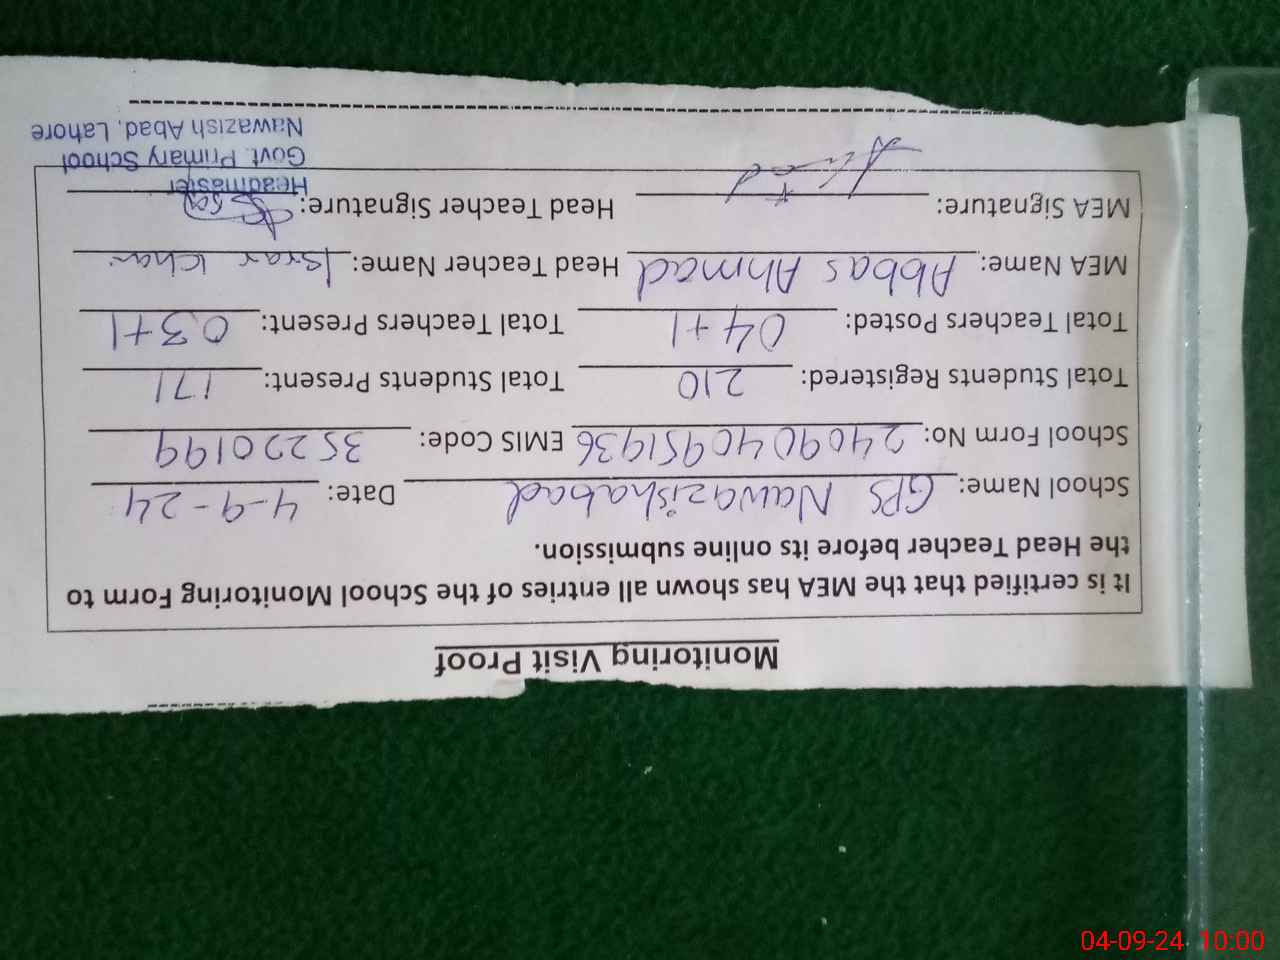 Monitoring Visit Proof
It is certified that the MEA has shown all entries of the School Monitoring Form to
the Head Teacher before its online submission.
School Name: GPS Nawazishabad Date: 4-9-24
School Form No: 2409040951936 EMIS Code: 35220199
Total Students Registered: 210 Total Students Present: 171
Total Teachers Posted: 04+1 Total Teachers Present: 03+1
MEA Name: Abbas Ahmad Head Teacher Name: Israr Khan
MEA Signature: Head Teacher Signature:
Headmaster
Govt. Primary School
Nawazish Abad, Lahore
04-09-24 10:00